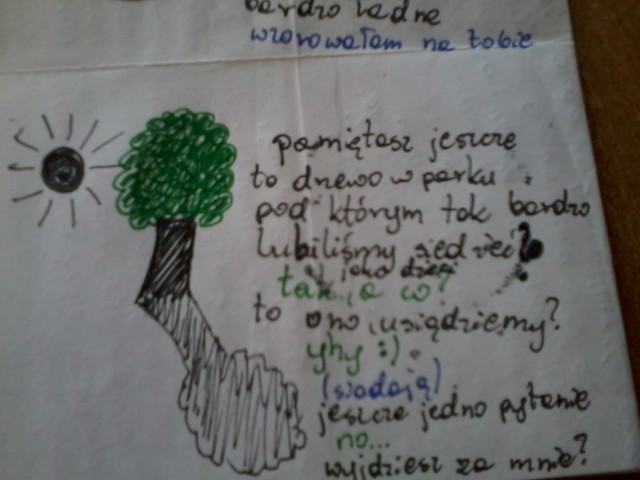 bardzo ładne
wzorowałam na tobie
pamiętasz jeszcze
to drzewo w parku
pod którym tak bardzo
lubiliśmy siedzieć?
jako dzieci
tak, a co?
to ono, usiądziemy?
yhy :)
(siadają)
jeszcze jedno pytanie
no...
wyjdziesz za mnie?